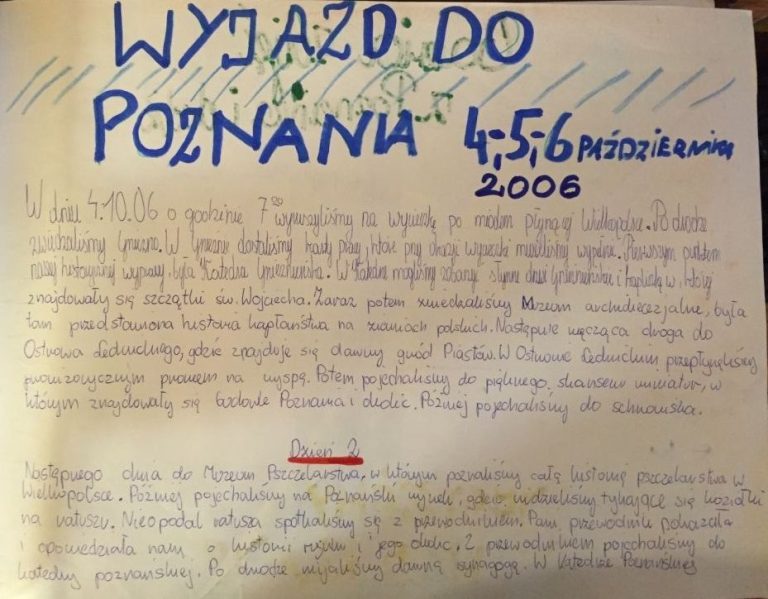 WYJAZD DO
POZNANIA 4,-5,-6 PAŹDZIERNIKA
2006
W dniu 4.10.06 o godzinie 7⁰⁰ wyruszyliśmy na wycieczkę po miodem płynącej Wielkopolsce. Po drodze
zwiedzaliśmy Gniezno. W Gnieźnie dostaliśmy karty pracy, które przy okazji wycieczki musieliśmy wypełnić. Pierwszym punktem
naszej historycznej wyprawy, była Katedra Gnieźnieńska. W Katedrze mogliśmy zobaczyć słynne drzwi Gnieźnieńskie i kapliczkę w, której
znajdowały się szczątki św. Wojciecha. Zaraz potem zwiedzaliśmy Muzeum archidiecezjalne, była
tam przedstawiona historia kapłaństwa na ziemiach polskich. Następnie męcząca droga do
Ostrowa Lednickiego, gdzie znajduje się dawny gród Piastów. W Ostrowie Lednickim przepłynęliśmy
prowizorycznym promem na wyspę. Potem pojechaliśmy do pięknego skansenu miniatur, w
którym znajdowały się budowle Poznania i okolic. Później pojechaliśmy do schroniska.
Dzień 2
Następnego dnia do Muzeum Pszczelarstwa, w którym poznaliśmy całą historię pszczelarstwa w
Wielkopolsce. Później pojechaliśmy na Poznański rynek, gdzie widzieliśmy tykające się koziołki
na ratuszu. Nieopodal ratusza spotkaliśmy się z przewodnikiem. Pani przewodnik pokazała
i opowiedziała nam o historii rynku i jego okolic. Z przewodnikiem pojechaliśmy do
katedry poznańskiej. Po drodze mijaliśmy dawną synagogę. W Katedrze Poznańskiej